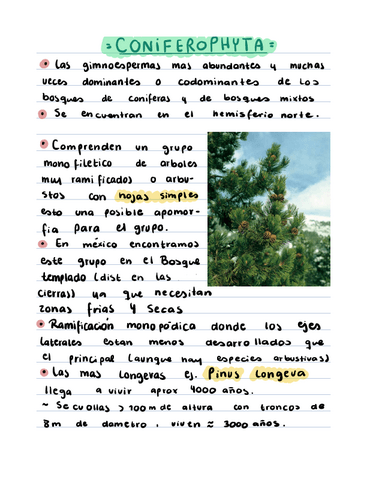 = CONIFEROPHYTA =
• Las gimnoespermas mas abundantes y muchas
veces dominantes o codominantes de los
bosques de coniferas y de bosques mixtos
• Se encuentran en el hemisferio norte.
• Comprenden un grupo
monofiletico de arboles
muy ramificados o arbu-
stos con hojas simples
esto una posible apomor-
fia para el grupo.
• En méxico encontramos
este grupo en el Bosque
templado (dist en las
cierras) ya que necesitan
zonas frias y secas
• Ramificación monopódica donde los ejes
laterales estan menos desarrollados que
el principal (aunque hay especies arbustivas)
• Las mas longevas ej. Pinus longeva
llega a vivir aprox 4000 años.
~ Secuollas > 100m de altura con troncos de
8m de dametro, viven ≈ 3000 años.